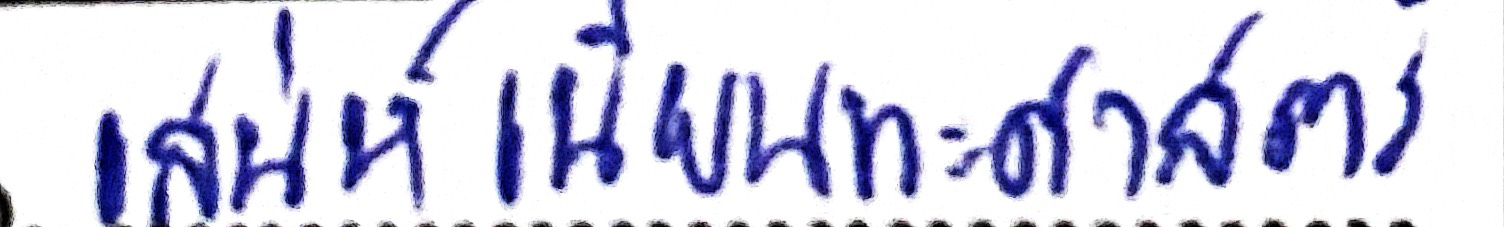 เสน่ห์ เนียนทะศาสตร์